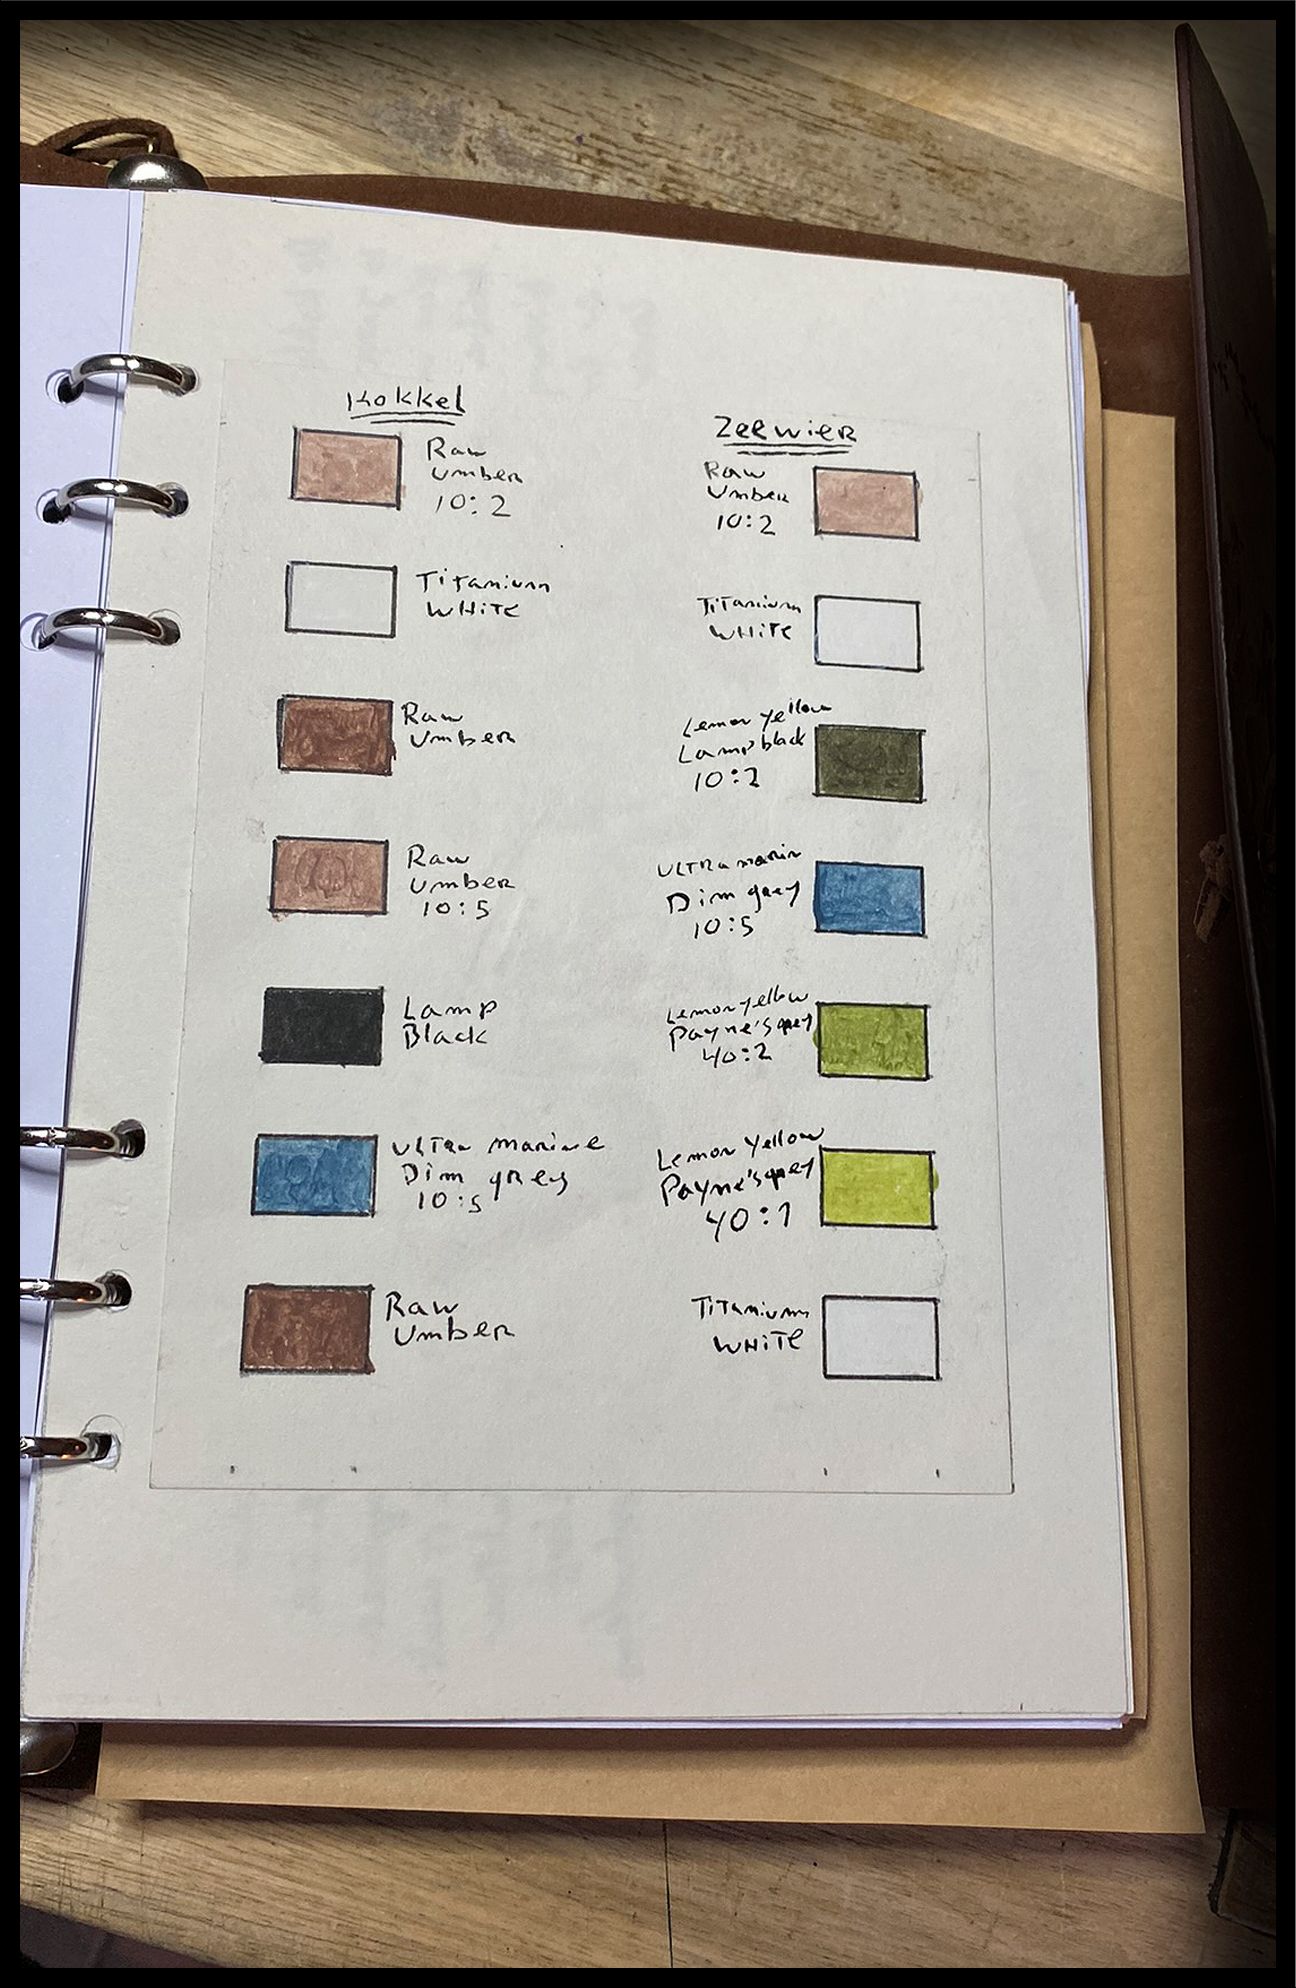 Kokkel
Raw
Umber
10:2
Titanium
White
Raw
Umber
Raw
Umber
10:5
Lamp
Black
Ultra marine
Dim grey
10:5
Raw
Umber
Zeewier
Raw
Umber
10:2
Titanium
White
Lemon yellow
Lamp black
10:2
Ultra marin
Dim grey
10:5
Lemon yellow
Payne's grey
40:2
Lemon yellow
Payne's grey
40:1
Titanium
White